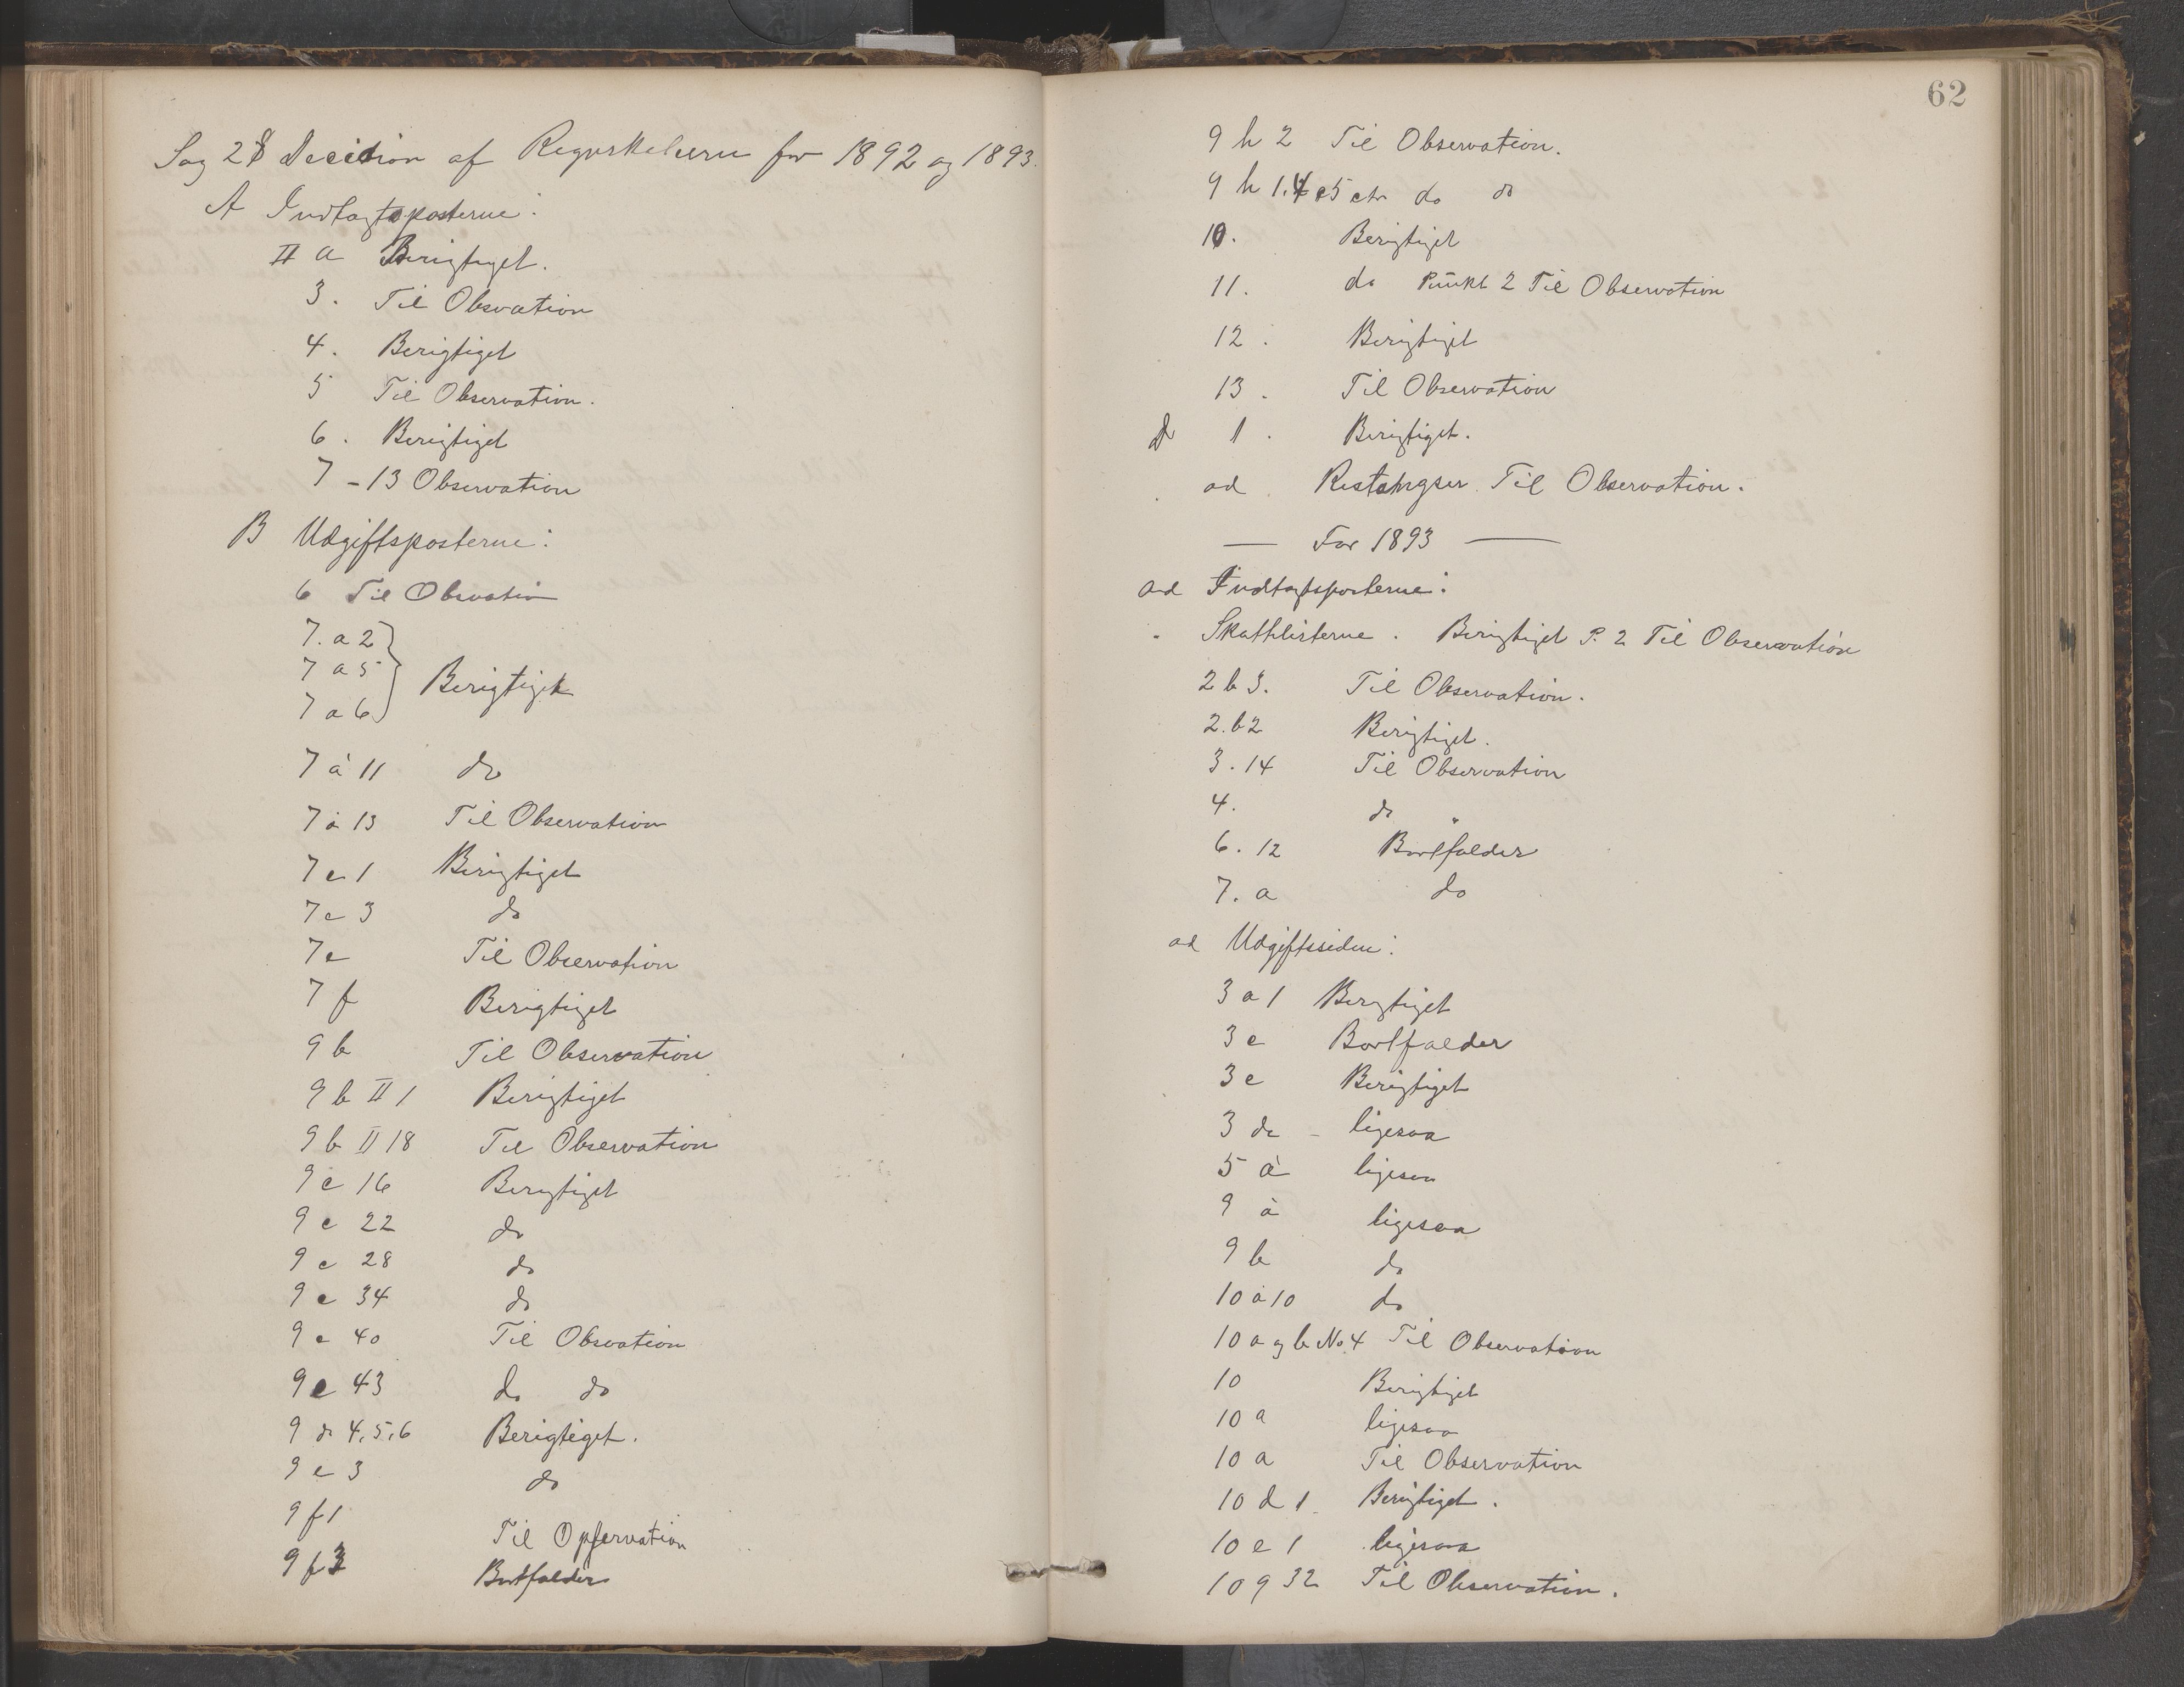 Sag 28 Decision af Regnskaberne for 1892 og 1893.
A Indtægtsposterne:
II a Berigtiget.
3. Til Obsvation
4. Berigtiget
5 Til Observation.
6. Berigtiget
7-13 Observation
B Udgiftsposterne:
6 Til Obsvation
7. a 2
7 a 5 Berigtiget
7 a 6
7 a 11 do
7 a 13 Til Observation
7 c 1 Berigtiget
7 c 3 do
7 e Til Observation
7 f Berigtiget
9 b Til Observation
9 b II 1 Berigtiget
9 b II 18 Til Observation
9 c 16 Berigtiget
9 c 22 do
9 c 28 do
9 c 34 do
9 c 40 Til Obsvation
9 c 43 do do
9 d 4,5,6 Berigtiget.
9 e 3 do
9 f 1 Til Opservation
9 f 3 Bortfalder
62
9 h 2 Til Observation.
9 h 1.4 do do
10. Berigtiget
11. do Punkt 2 Til Observation
12. Berigtiget
13. Til Observation
D 1. Berigtiget.
ad Restanser Til Observation.
— For 1893 —
ad Indtægtsposterne:
" Skattelisterne. Berigtiget P. 2 Til Observation
2 b 3. Til Observation.
2. b 2 Berigtiget.
3. 14 Til Observation
4. do "
6. 12 Bortfalder
7. a do
ad Udgiftssiden:
3 a 1 Berigtiget
3 c Bortfalder
3 c Berigtiget
3 d - ligesaa
5 a ligesaa
9 a ligesaa
9 b do
10 a 10 do
10 a og b No 4 Til Observation
10 Berigtiget
10 a ligesaa
10 a Til Observation
10 d 1 Berigtiget.
10 e 1 ligesaa
10 g 32 Til Observation.